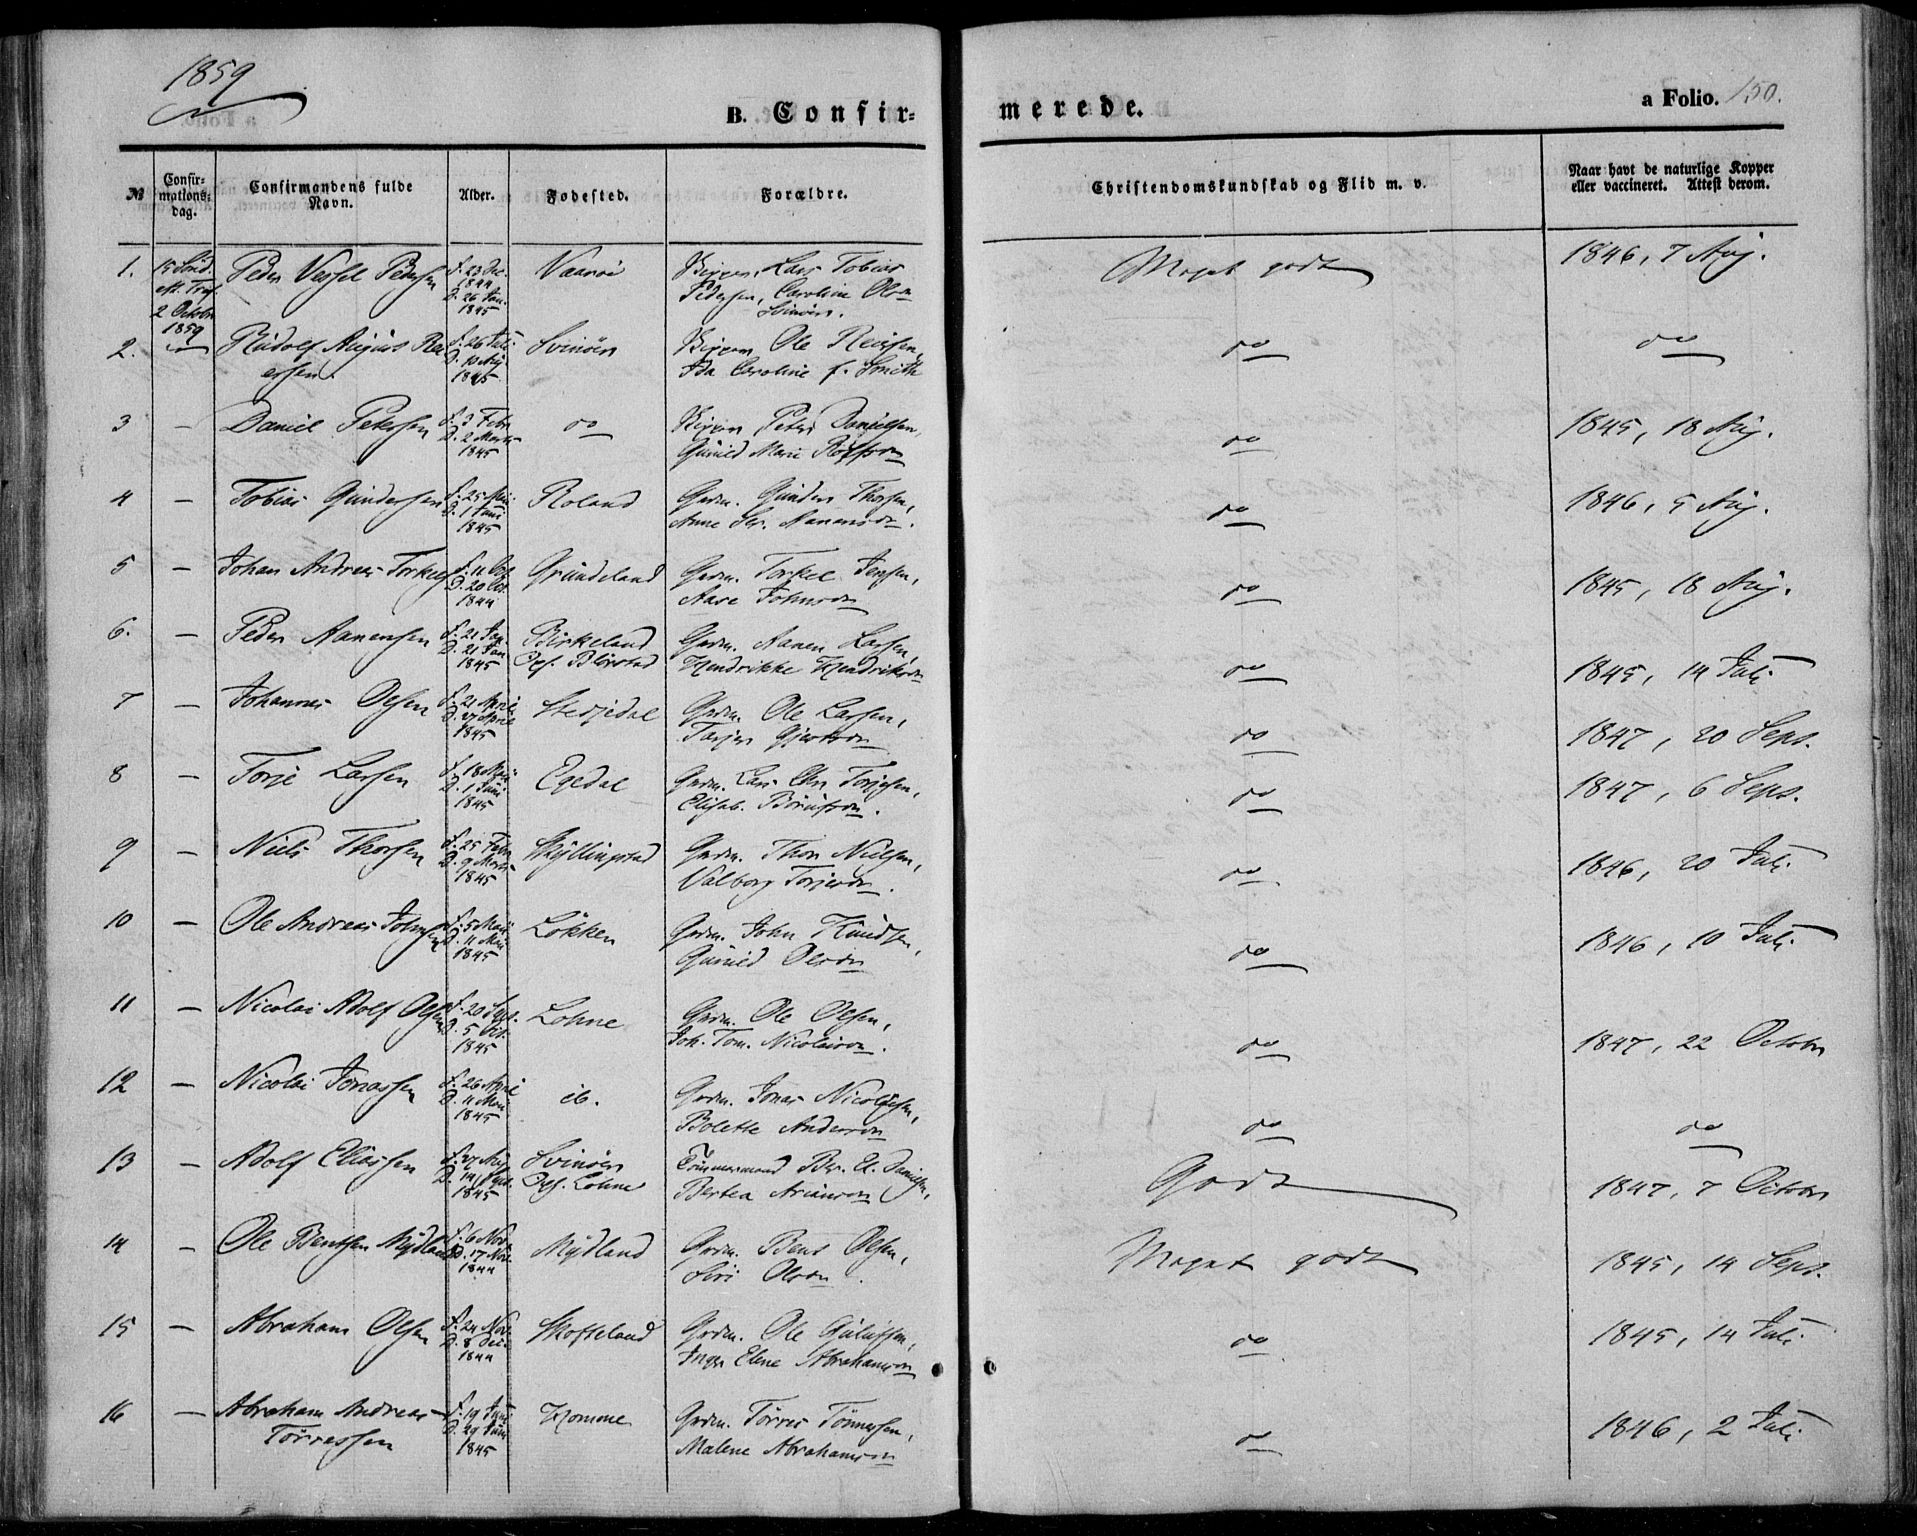 1859
B. Confirmerede.
a Folio. 150.
№ Confirmationsdag. Confirmandens fulde Navn. Alder. Fødested. Forældre. Christendomskundskab og Flid m. v. Naar havt de naturlige Kopper eller vaccineret. Attest derom.
1. 15 Sønd. eft. Tref. 2 Octobr 1859 Peder Vessel Pedersen f. 23 Dec. 1844 D. 26 Jan. 1845 Vaarøi Lars Tobias Pedersen, Caroline Olsdn Svinøen. Meget godt 1846, 7 Aug.
2. Rudolf August f. 26 Juli D. 10 Aug. 1845 Svinøen Ole Ida Caroline f. Smith do do
3 — Daniel Petersen f. 3 Febr D. 2 Marts 1845 do Peter Danielsen, Gunild Marie do 1845, 18 Aug.
4 — Tobias Gundersen f. 25 Mai D. 1 Juni 1845 Roland Grdm. Gunder Thorsen, Anne Ser. Aanensdn. do 1846, 5 Aug.
5 — Johan Andreas f. 11 Oct. D. 20 Oct. 1844 Grundeland Grdm. Torkel Jensen, Aase Johnsdn do 1845, 18 Aug.
6. — Peder Aanensen f. 21 Jan. D. 21 Jan. 1845 Birkeland Grdm. Aanen Larsen, Hendrikke Hendriksdn do 1845, 14 Juli
7 — Johannes Olsen f. 21 April D. 27 April 1845 Stedjedal Grdm. Ole Larsen, do 1847, 20 Sept.
8 — Torje Larsen f. 18 Mai D. 1 Juni 1845 Egedal Grdm. Lars Torjesen, Elisab. do 1847, 6 Sept.
9 — Niels Thorsen f. 25 Febr D. 9 Marts 1845 Skyllingstad Grdm. Thor Nielsen, Valborg Torjesdn. do 1846, 20 Juli
10 — Ole Andreas Johnsen f. 5 Mai D. 11 Mai 1845 Løkken Grdm. John Knudsen, Gunild Olsdn do 1846, 10 Juli
11 — Nicolai Adolf Olsen f. 20 Sept. D. 5 Oct. 1845 Lohne Grdm. Ole Olsen, Joh. Tom. Nicolaisdn. do 1847, 22 Octobr
12 — Nicolai Jonassen f. 26 April D. 11 Mai 1845 ib. Grdm. Jonas Nicolaisen, Bolette Andersdn do do
13 — Adolf Eliassen f. 27 Aug D. 14 Sept. 1845 Svinøen Opf. Lohne Tømmermand Danielsen, Bertea Godt 1847, 7 Octobr
14 — Ole Bentsen Mydland f. 6 Nov. D. 17 Nov. 1844 Mydland Grdm. Bent Olsen, Siri Olsdn. Meget godt 1845, 14 Sept.
15 — Abraham Olsen f. 24 Nov. D. 8 Dec. 1844 Skofteland Grdm. Ole Inger Elene Abrahamsdn do 1845, 14 Juli
16 — Abraham Andreas Tørressen f. 19 Juni D. 29 Juni 1845 Homme Grdm. Tørres Tønnessen, Malene Abrahamsdn do 1846, 2 Juli